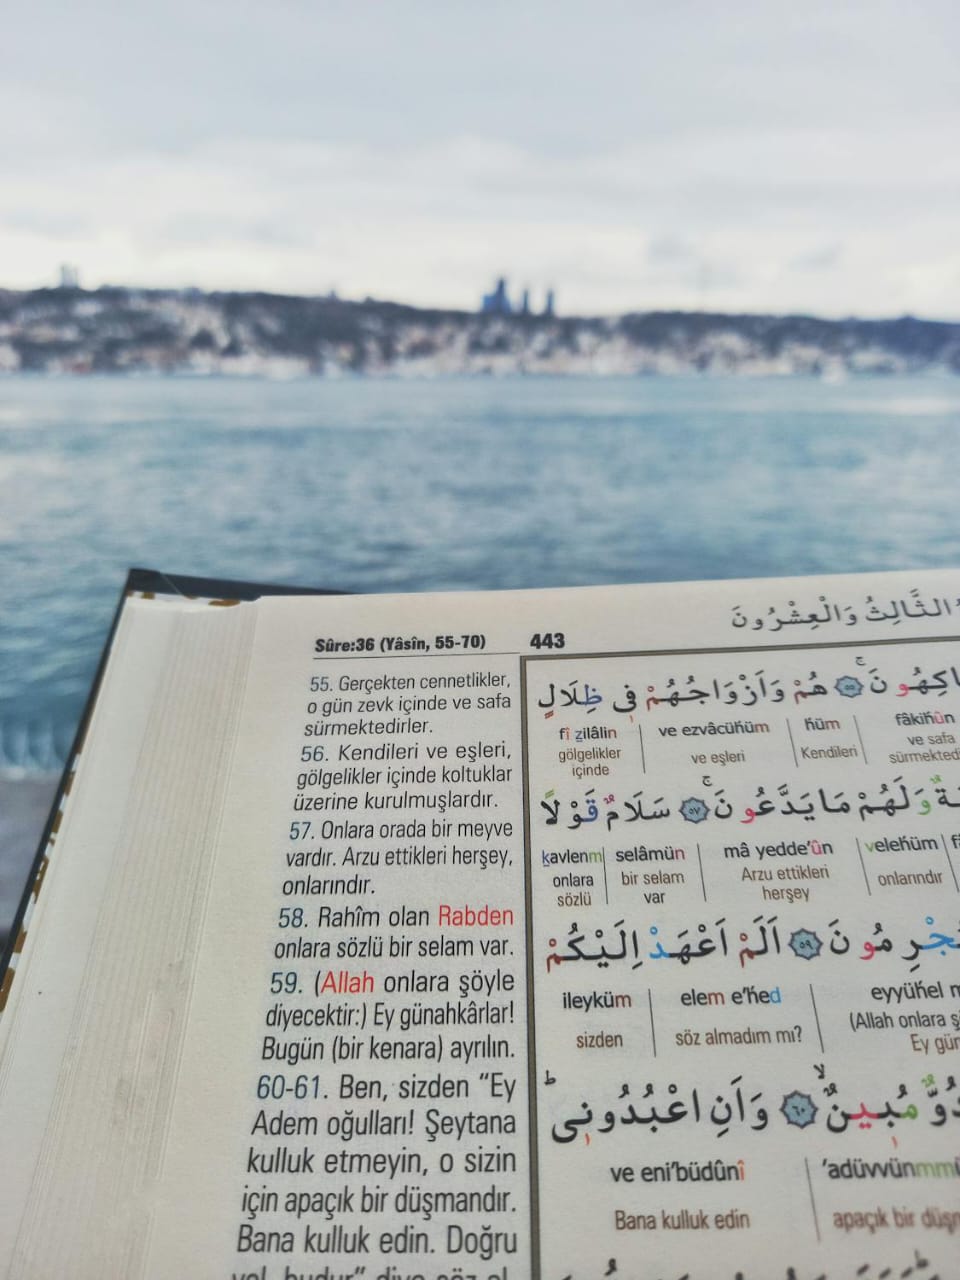 Sûre:36 (Yâsîn, 55-70)
443
الثَّالِثُ وَالْعِشْرُونَ
55. Gerçekten cennetlikler,
o gün zevk içinde ve safa
sürmektedirler.
56. Kendileri ve eşleri,
gölgelikler içinde koltuklar
üzerine kurulmuşlardır.
57. Onlara orada bir meyve
vardır. Arzu ettikleri herşey,
onlarındır.
58. Rahîm olan Rabden
onlara sözlü bir selam var.
59. (Allah onlara şöyle
diyecektir:) Ey günahkârlar!
Bugün (bir kenara) ayrılın.
60-61. Ben, sizden “Ey
Adem oğulları! Şeytana
kulluk etmeyin, o sizin
için apaçık bir düşmandır.
Bana kulluk edin. Doğru
yol budur” diye söz al
اكِهُونَ ۵۵ هُمْ وَأَزْوَاجُهُمْ فِى ظِلَالٍ
fî zilâlin ve ezvâcühüm hüm fâkihûn
gölgelikler içinde ve eşleri Kendileri ve safa sürmektedi
وَلَهُمْ مَا يَدَّعُونَ ۵۷ سَلَامٌ قَوْلًا
kavlenm selâmün mâ yedde’ûn velehüm
onlara sözlü bir selam var Arzu ettikleri herşey onlarındır
جْرِمُونَ ۵۹ اَلَمْ اَعْهَدْ اِلَيْكُمْ
ileyküm elem e’hed eyyühel m
sizden söz almadım mı? (Allah onlara ş
Ey gün
دُوٌّ مُبِينٌ ۶۰ وَاَنِ اعْبُدُونِى
ve eni’büdûnî ’adüvvünmm
Bana kulluk edin apaçık bir düşm